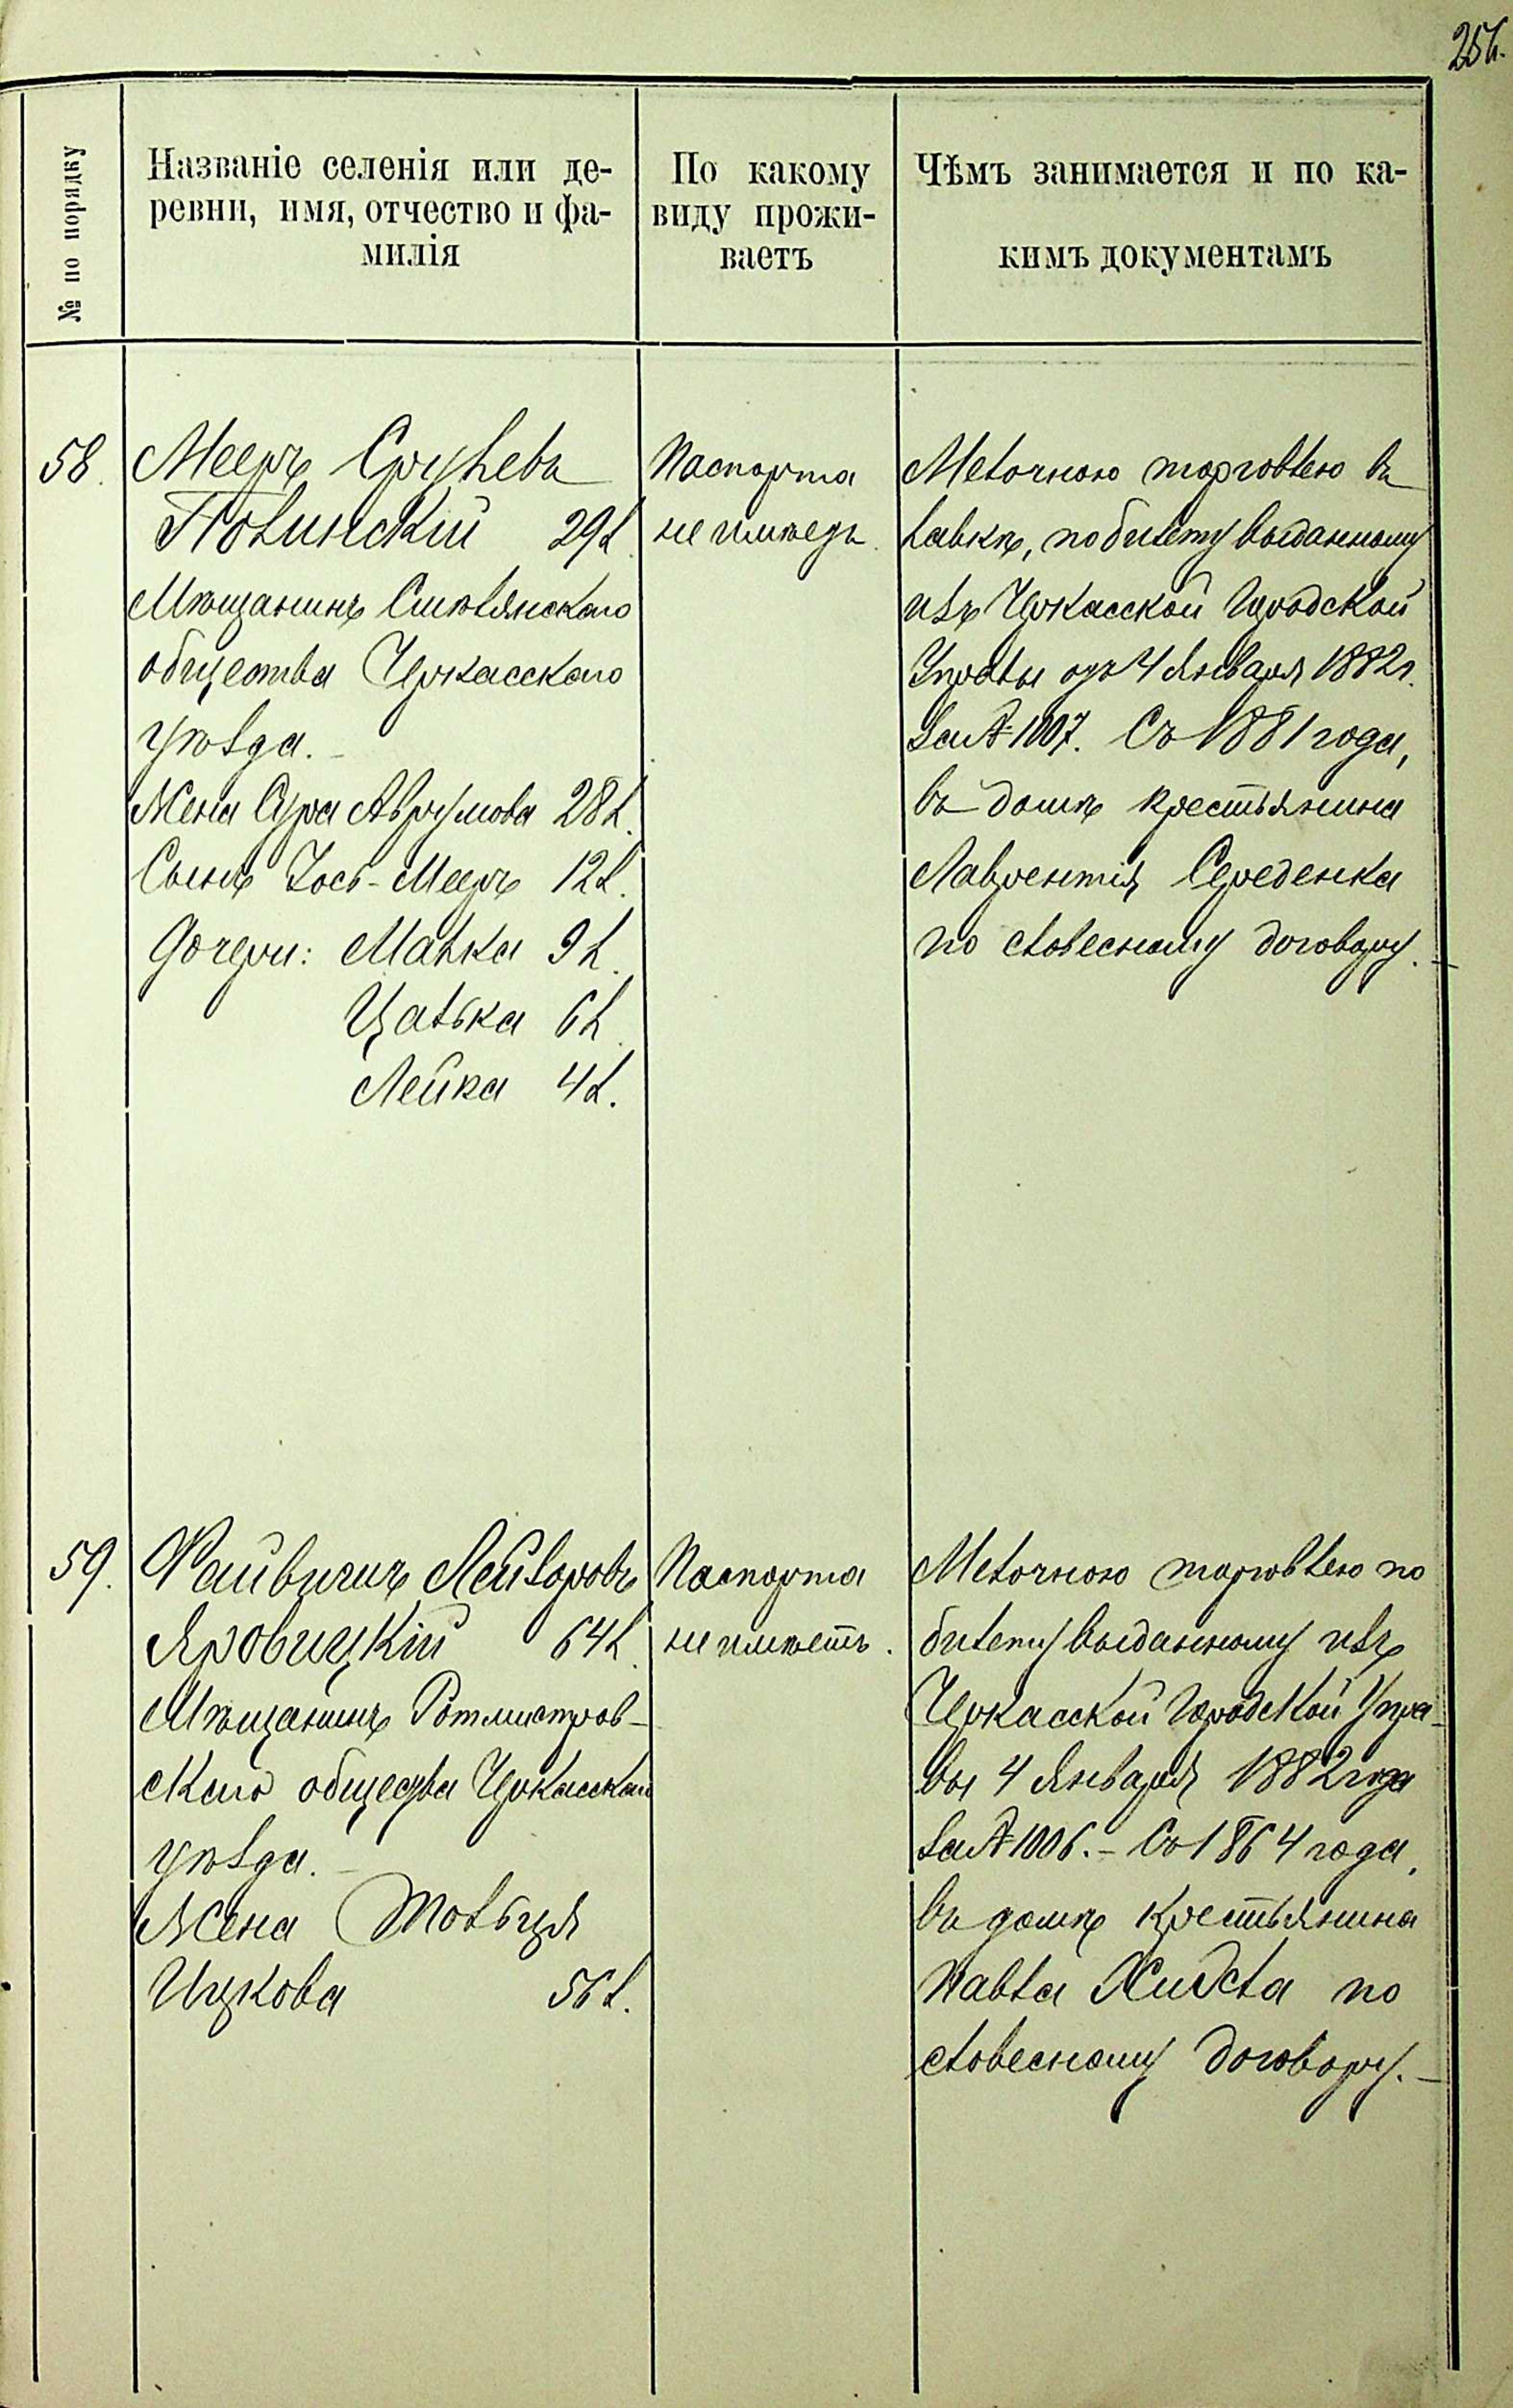 256.
№ по порядку
Названіе селенія или де-
ревни, имя, отчество и фа-
милія
По какому
виду прожи-
ваетъ
Чѣмъ занимается и по ка-
кимъ документамъ
58.
Мееръ Срулевъ
Полинскій 29 л.
Мѣщанинъ Смѣлянскаго
общества Черкасскаго
уѣзда.-
Жена Сура Аврумова 28 л.
Сынъ Іось-Мееръ 12 л.
Дочери: Малка 9 л.
Цалька 6 л.
Лейка 4 л.
Паспорта
не имѣетъ.
Мелочною торговлею въ
лавкѣ, по билету выданному
изъ Черкасской Городской
Управы отъ 4 Января 1882 г.
за № 1007. Съ 1881 года,
въ домѣ крестьянина
Лаврентія Середенка
по словесному договору.-
59.
Файвишъ Лейзоровъ
Яровицкій 64 л.
Мѣщанинъ Ротмистров-
скаго общества Черкасскаго
уѣзда.-
Жена
Ицкова 56 л.
Паспорта
не имѣетъ.
Мелочною торговлею по
билету выданному изъ
Черкасской Городской Упра-
вы 4 Января 1882 года
за № 1006.- Съ 1864 года,
въ домѣ крестьянина
Павла по
словесному договору.-